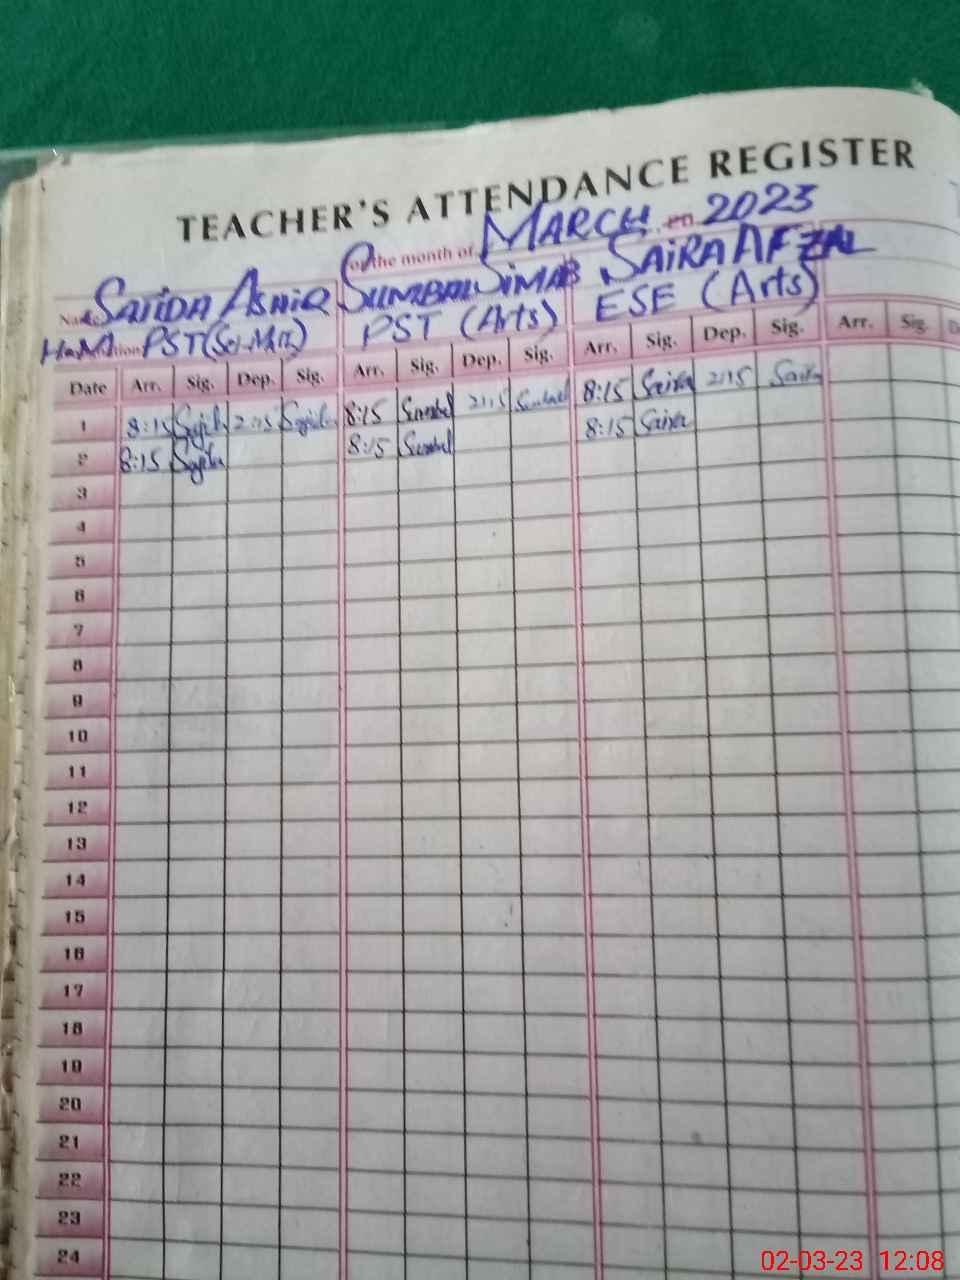 TEACHER'S ATTENDANCE REGISTER
for the month of MARCH 2023
SAJIDA ASHIQ SUMBAL SIMAB SAIRA AFZAL
PST (Sci-Mat) PST (Arts) ESE (Arts)
Date Arr. Sig. Dep. Sig. Arr. Sig. Dep. Sig. Arr. Sig. Dep. Sig. Arr. Sig.
1 8:15 Sajida 2:15 Sajida 8:15 Sumbal 2:15 Sumbal 8:15 Saira 2:15 Saira
2 8:15 Sajida 8:15 Sumbal 8:15 Saira
3
4
5
6
7
8
9
10
11
12
13
14
15
16
17
18
19
20
21
22
23
24
02-03-23 12:08